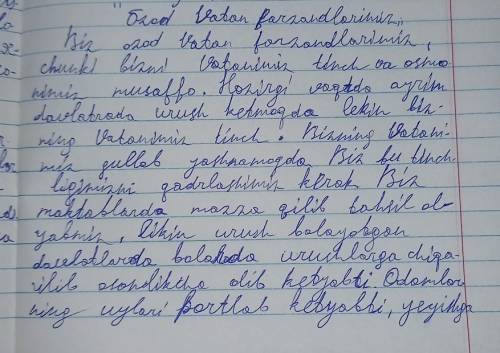 "Ozod Vatan farzandlarimiz"
Biz ozod Vatan farzandlarimiz,
chunki bizni Vatanimiz tinch va osmo
nimiz musaffo. Hozirgi vaqtda ayrim
davlatrada urush ketmoqda lekin biz-
ning Vatanimiz tinch. Bizning Vatani-
miz gullab yashnamoqda Biz bu tinch-
ligimizni qadrlashimiz kerak Biz
maktablarda mazza qilib tahsil ol-
yabmiz, likin urush bolayotgan
davlatlarda bolalada urushlarga chiqa-
rilib osondikcha olib ketyabti. Odamlar
ning uylari portlab ketyabti, yeyishga